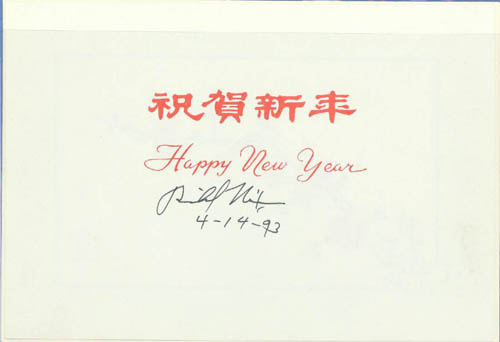 祝賀新年
Happy New Year
Richard Nixon
4-14-93